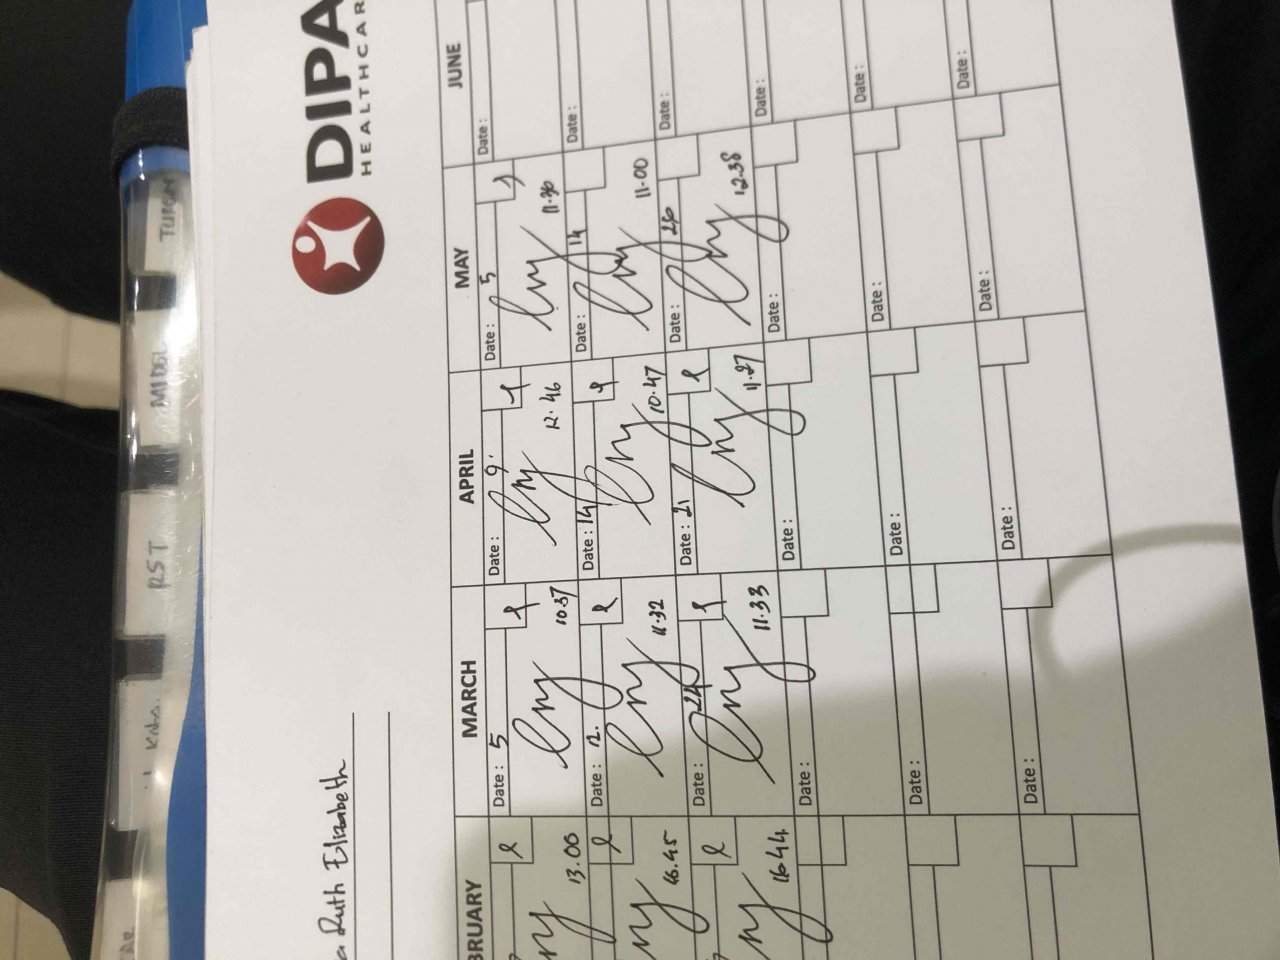 DIPA
HEALTHCAR
a Ruth Elizabeth
BRUARY MARCH APRIL MAY JUNE
Date : 5 Date : 9 Date : 5 Date :
13.00 10.37 12.46 11.30
Date : 12. Date : 14 Date : 14 Date :
16.45 11.32 10.47 11.00
Date : 24 Date : 21 Date : 26 Date :
16.44 11.33 11.27 12.38
Date : Date : Date : Date :
Date : Date : Date : Date :
Date : Date : Date : Date :
RST